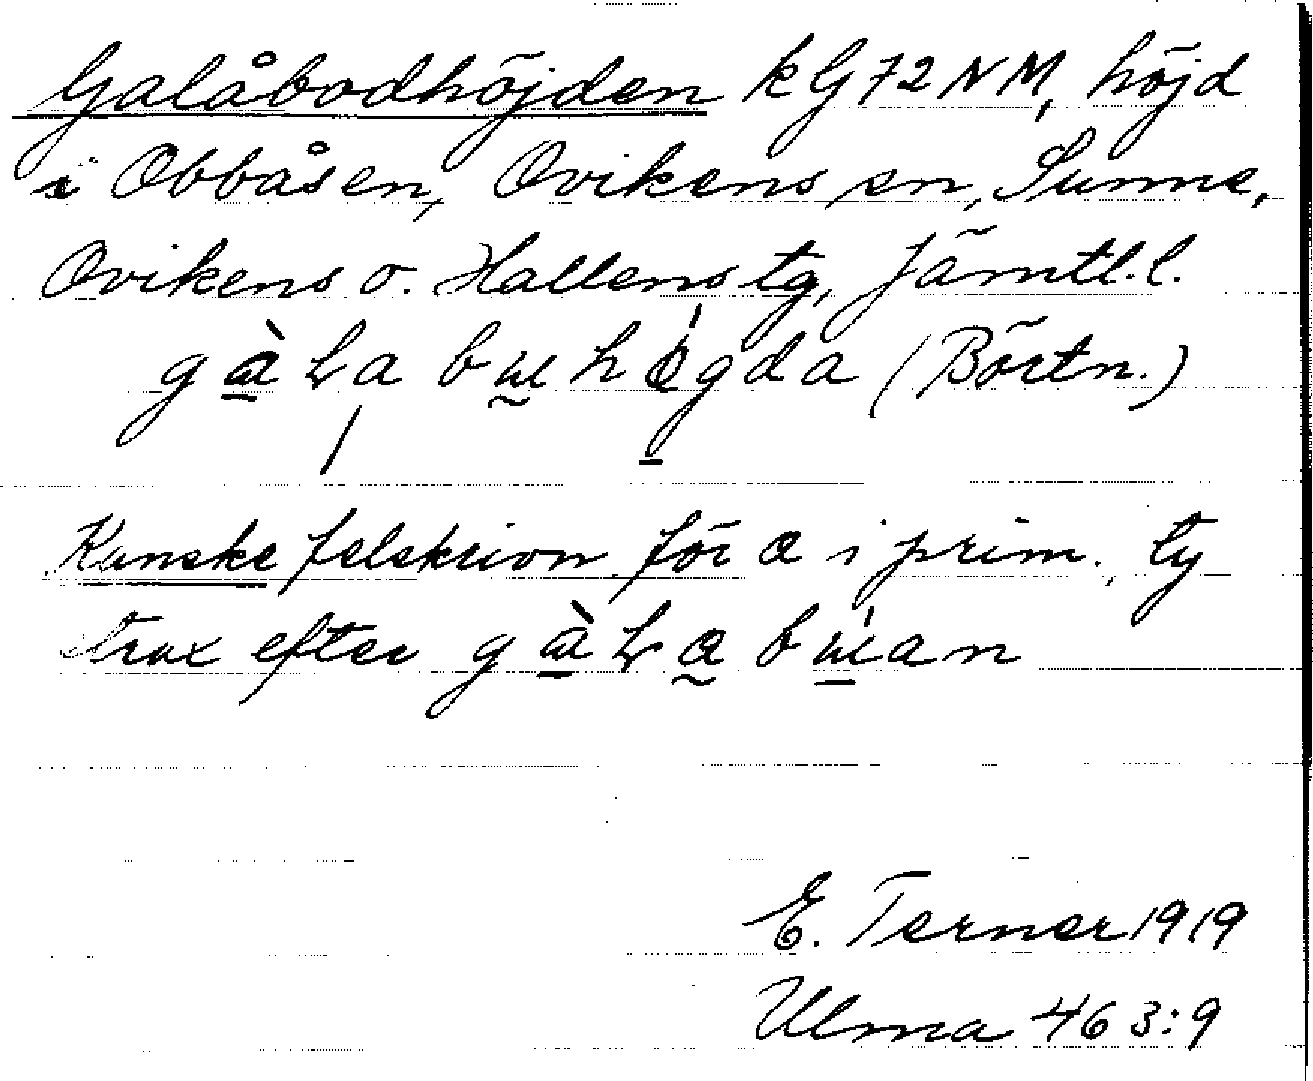 Galåbodhöjden kG72NM, höjd
i Obbåsen, Ovikens sn, Sunne,
Ovikens o. Hallens tg, Jämtl. l.
(Börtn.)
Kanske felskrivn. för a i prim., ty
strax efter
E. Terner 1919
Ulma 463:9